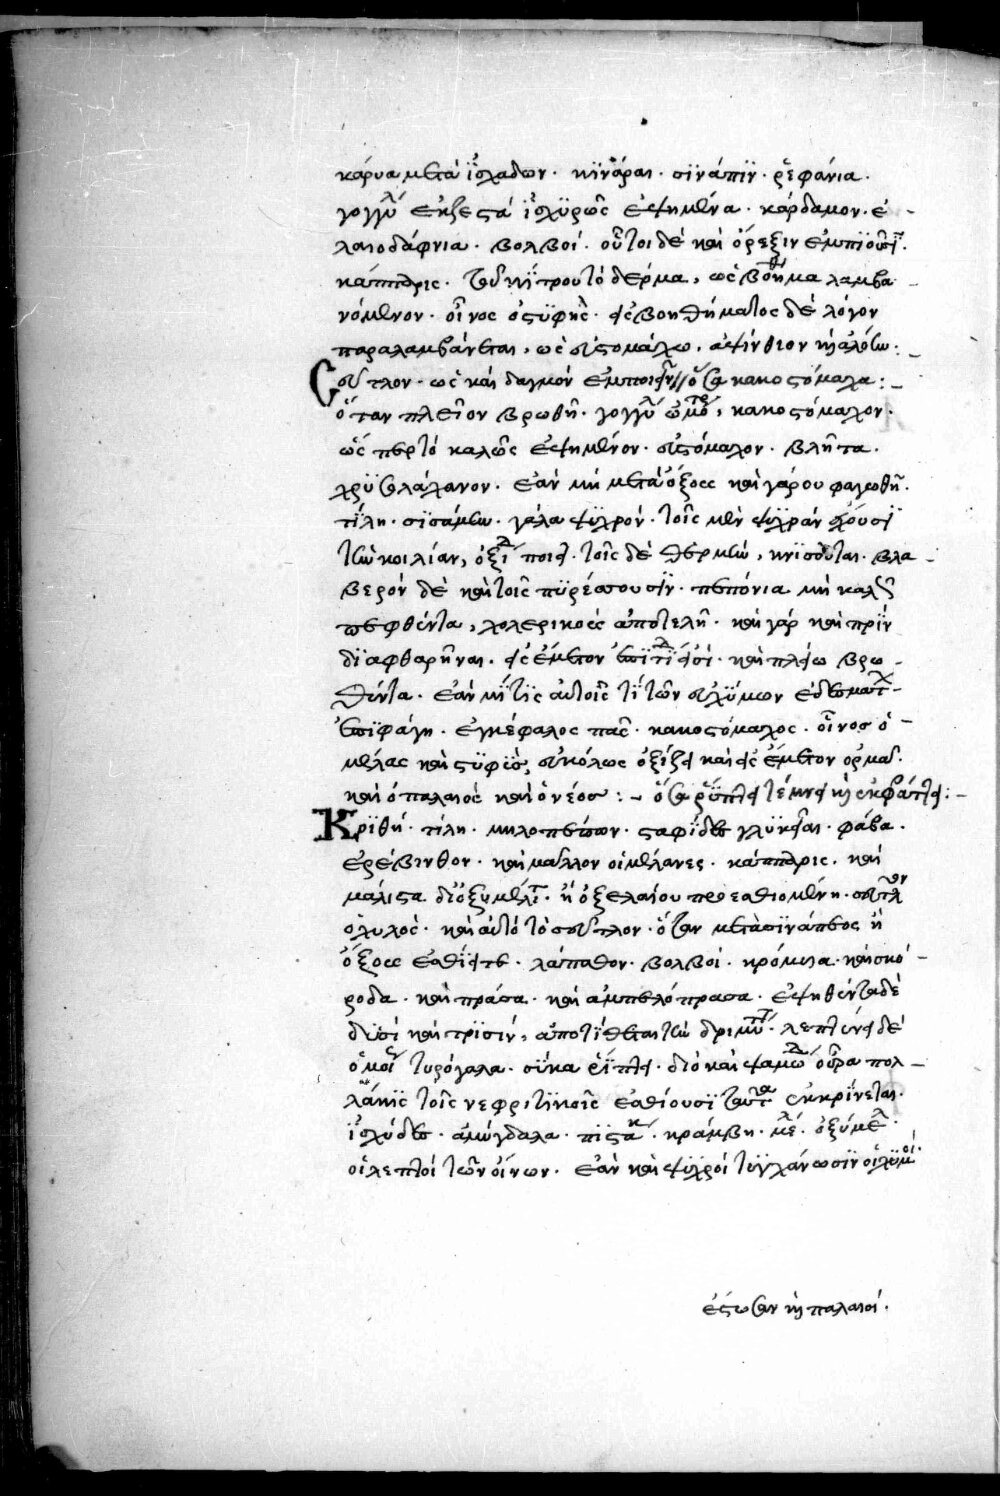 κάρυα μετὰ ἰσχάδων · κινάραι · σίναπιν · ῥεφάνια ·
γογγύλ ἐκζεστά ἰσχυρῶς ἑψημένα · κάρδαμον · ἐ -
λαιοδάφνια · βολβοί · οὗτοι δὲ καὶ ὄρεξιν ἐμποιοῦσι ·
κάππαρις · τοῦ κίτρου τὸ δέρμα, ὡς βοήθημα λαμβα -
νόμενον · οἶνος ὁ στύφης · εἰς βοηθήματος δὲ λόγον
παραλαμβάνεται, ὡς εὐστόμαχον, ἀψίνθιον καὶ ἀλόη :
Σεῦτλον · ὡς καὶ δαγμὸν ἐμποιεῖν // ὅσα κακοστόμαχα : -
ὅταν πλεῖον βρωθῇ · γογγύλ ὠμό, κακοστόμαχον ·
ὥσπερ τὸ καλῶς ἑψημένον · εὐστόμαχον · βλῆτα ·
χρυσολάχανον · ἐὰν μὴ μετὰ ὄξους καὶ γάρου φαγωθῇ ·
τίλη · σισάμη · γάλα ψυχρόν · τοῖς μὲν ψυχρὰν ἔχουσι
τὴν κοιλίαν, ὀξίζ ποιεῖ · τοῖς δὲ θερμὴν, κνισοῦται · βλα -
βερὸν δὲ καὶ τοῖς πυρέσσουσιν · πεπόνια μὴ καλῶς
πεφθέντα, χολερικοὺς ἀποτελῇ · καὶ γὰρ καὶ πρὶν
διαφθαρῆναι · εἰς ἔμετον · καὶ πλείω βρω -
θέντα · ἐὰν μή τις αὐτοῖς τι τῶν εὐχύμων ἐδεσμάτ -
ἐπιφάγῃ · ἐγκέφαλος πᾶς · κακοστόμαχος · οἶνος ὁ -
μέλας καὶ στυφὸς, εὐκόλως ὀξίζει καὶ εἰς ἔμετον ὁρμᾶ ·
καὶ ὁ παλαιὸς καὶ ὁ νέος : - ὅσα ῥύπτει τέμνει καὶ ἐκφράττει : -
Κριθή · τίλη · μηλοπέπων · σταφίδες γλυκεῖαι · φάβα ·
ἐρέβινθον · καὶ μᾶλλον οἱ μέλανες · κάππαρις · καὶ
μάλιστα δι' ὀξυμέλιτ · ἢ ὀξελαίου προεσθιομένη · σεῦτλον
ὁ χυλὸς · καὶ αὐτὸ τὸ σεῦτλον · ὅταν μετὰ σινάπεος ἢ
ὄξους ἐσθίητε · λάπαθον · βολβοί · κρόμυα · καὶ σκό -
ροδα · καὶ πράσα · καὶ ἀμπελόπρασα · ἑψηθέντα δὲ
δυσὶ καὶ τρισίν, ἀποτίθεται τὴν δριμύτ · λεπτύνει δὲ
ὁμοῦ τυρόγαλα · σῦκα ῥύπτει · διὸ καὶ ψαμώδ οὖρα πολ -
λάκις τοῖς νεφριτικοῖς ἐσθίουσι ταῦτα ἐκκρίνεται ·
ἰσχάδες · ἀμύγδαλα · πιστάκ · κράμβη · μέλ · ὀξύμελ ·
οἱ λεπτοὶ τῶν οἴνων · ἐὰν καὶ ψυχροὶ τυγχάνωσιν οἱ χυμοί ·
ἔστωσαν καὶ παλαιοί ·